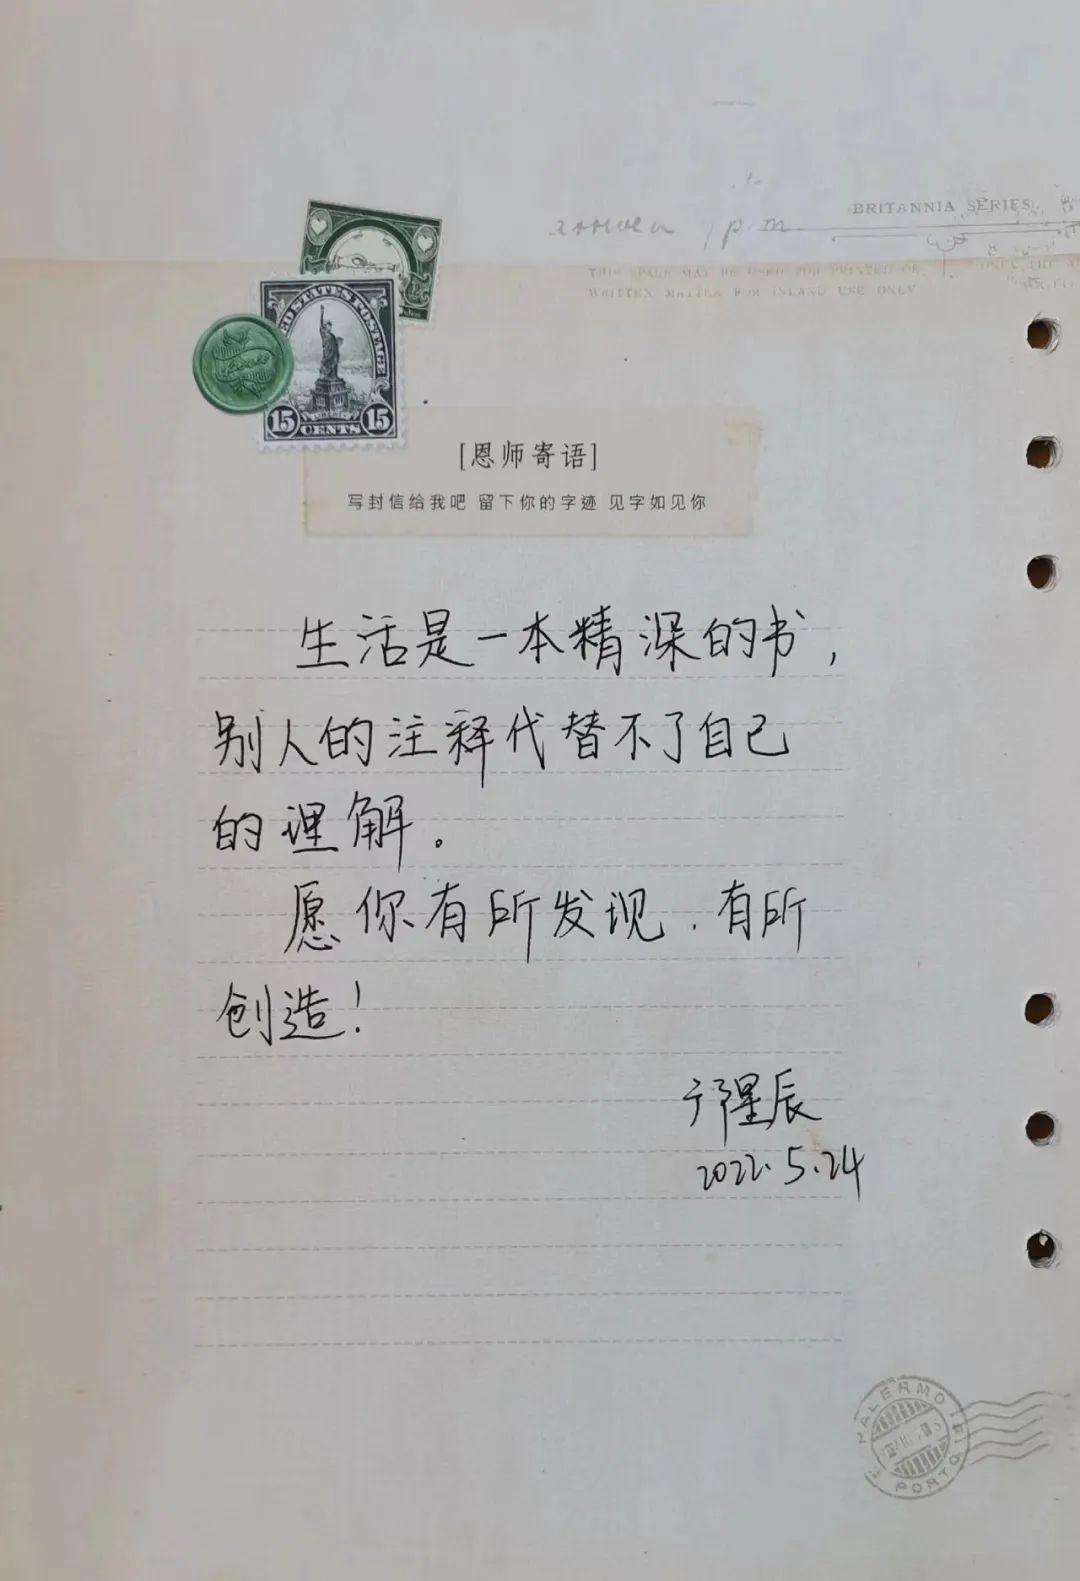 BRITANNIA SERIES
THIS SPACE MAY BE USED FOR PRINTED OR
WRITTEN MATTER FOR INLAND USE ONLY
UNITED STATES POSTAGE
LIBERTY
15 CENTS 15
[恩师寄语]
写封信给我吧 留下你的字迹 见字如见你
生活是一本精深的书,
别人的注释代替不了自己
的理解。
愿你有所发现,有所
创造!
星辰
2022.5.24
PORTO